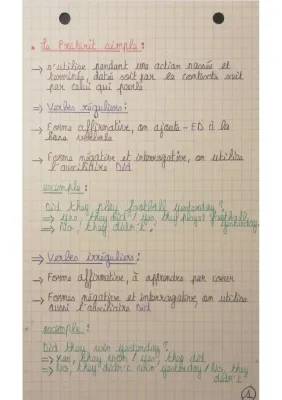 . Le Preterit simple :
→ s'utilise pendant une action passée et
terminée, daté soit par le contexte soit
par celui qui parle
→ Verbes réguliers :
→ Forme affirmative, on ajoute -ED à la
base verbale
→ Forme négative et interrogative, on utilise
l'auxiliaire Did
exemple :
Did they play football yesterday?
→ yes, they did / yes they played football
yesterday.
→ No, they didn't.
⇒ Verbes irréguliers :
→ Forme affirmative, à apprendre par coeur
→ Formes négative et interrogative, on utilise
aussi l'auxiliaire Did
exemple :
Did they win yesterday?
→ yes, they won / yes, they did
→ No, they didn't win yesterday / No, they
didn't
1